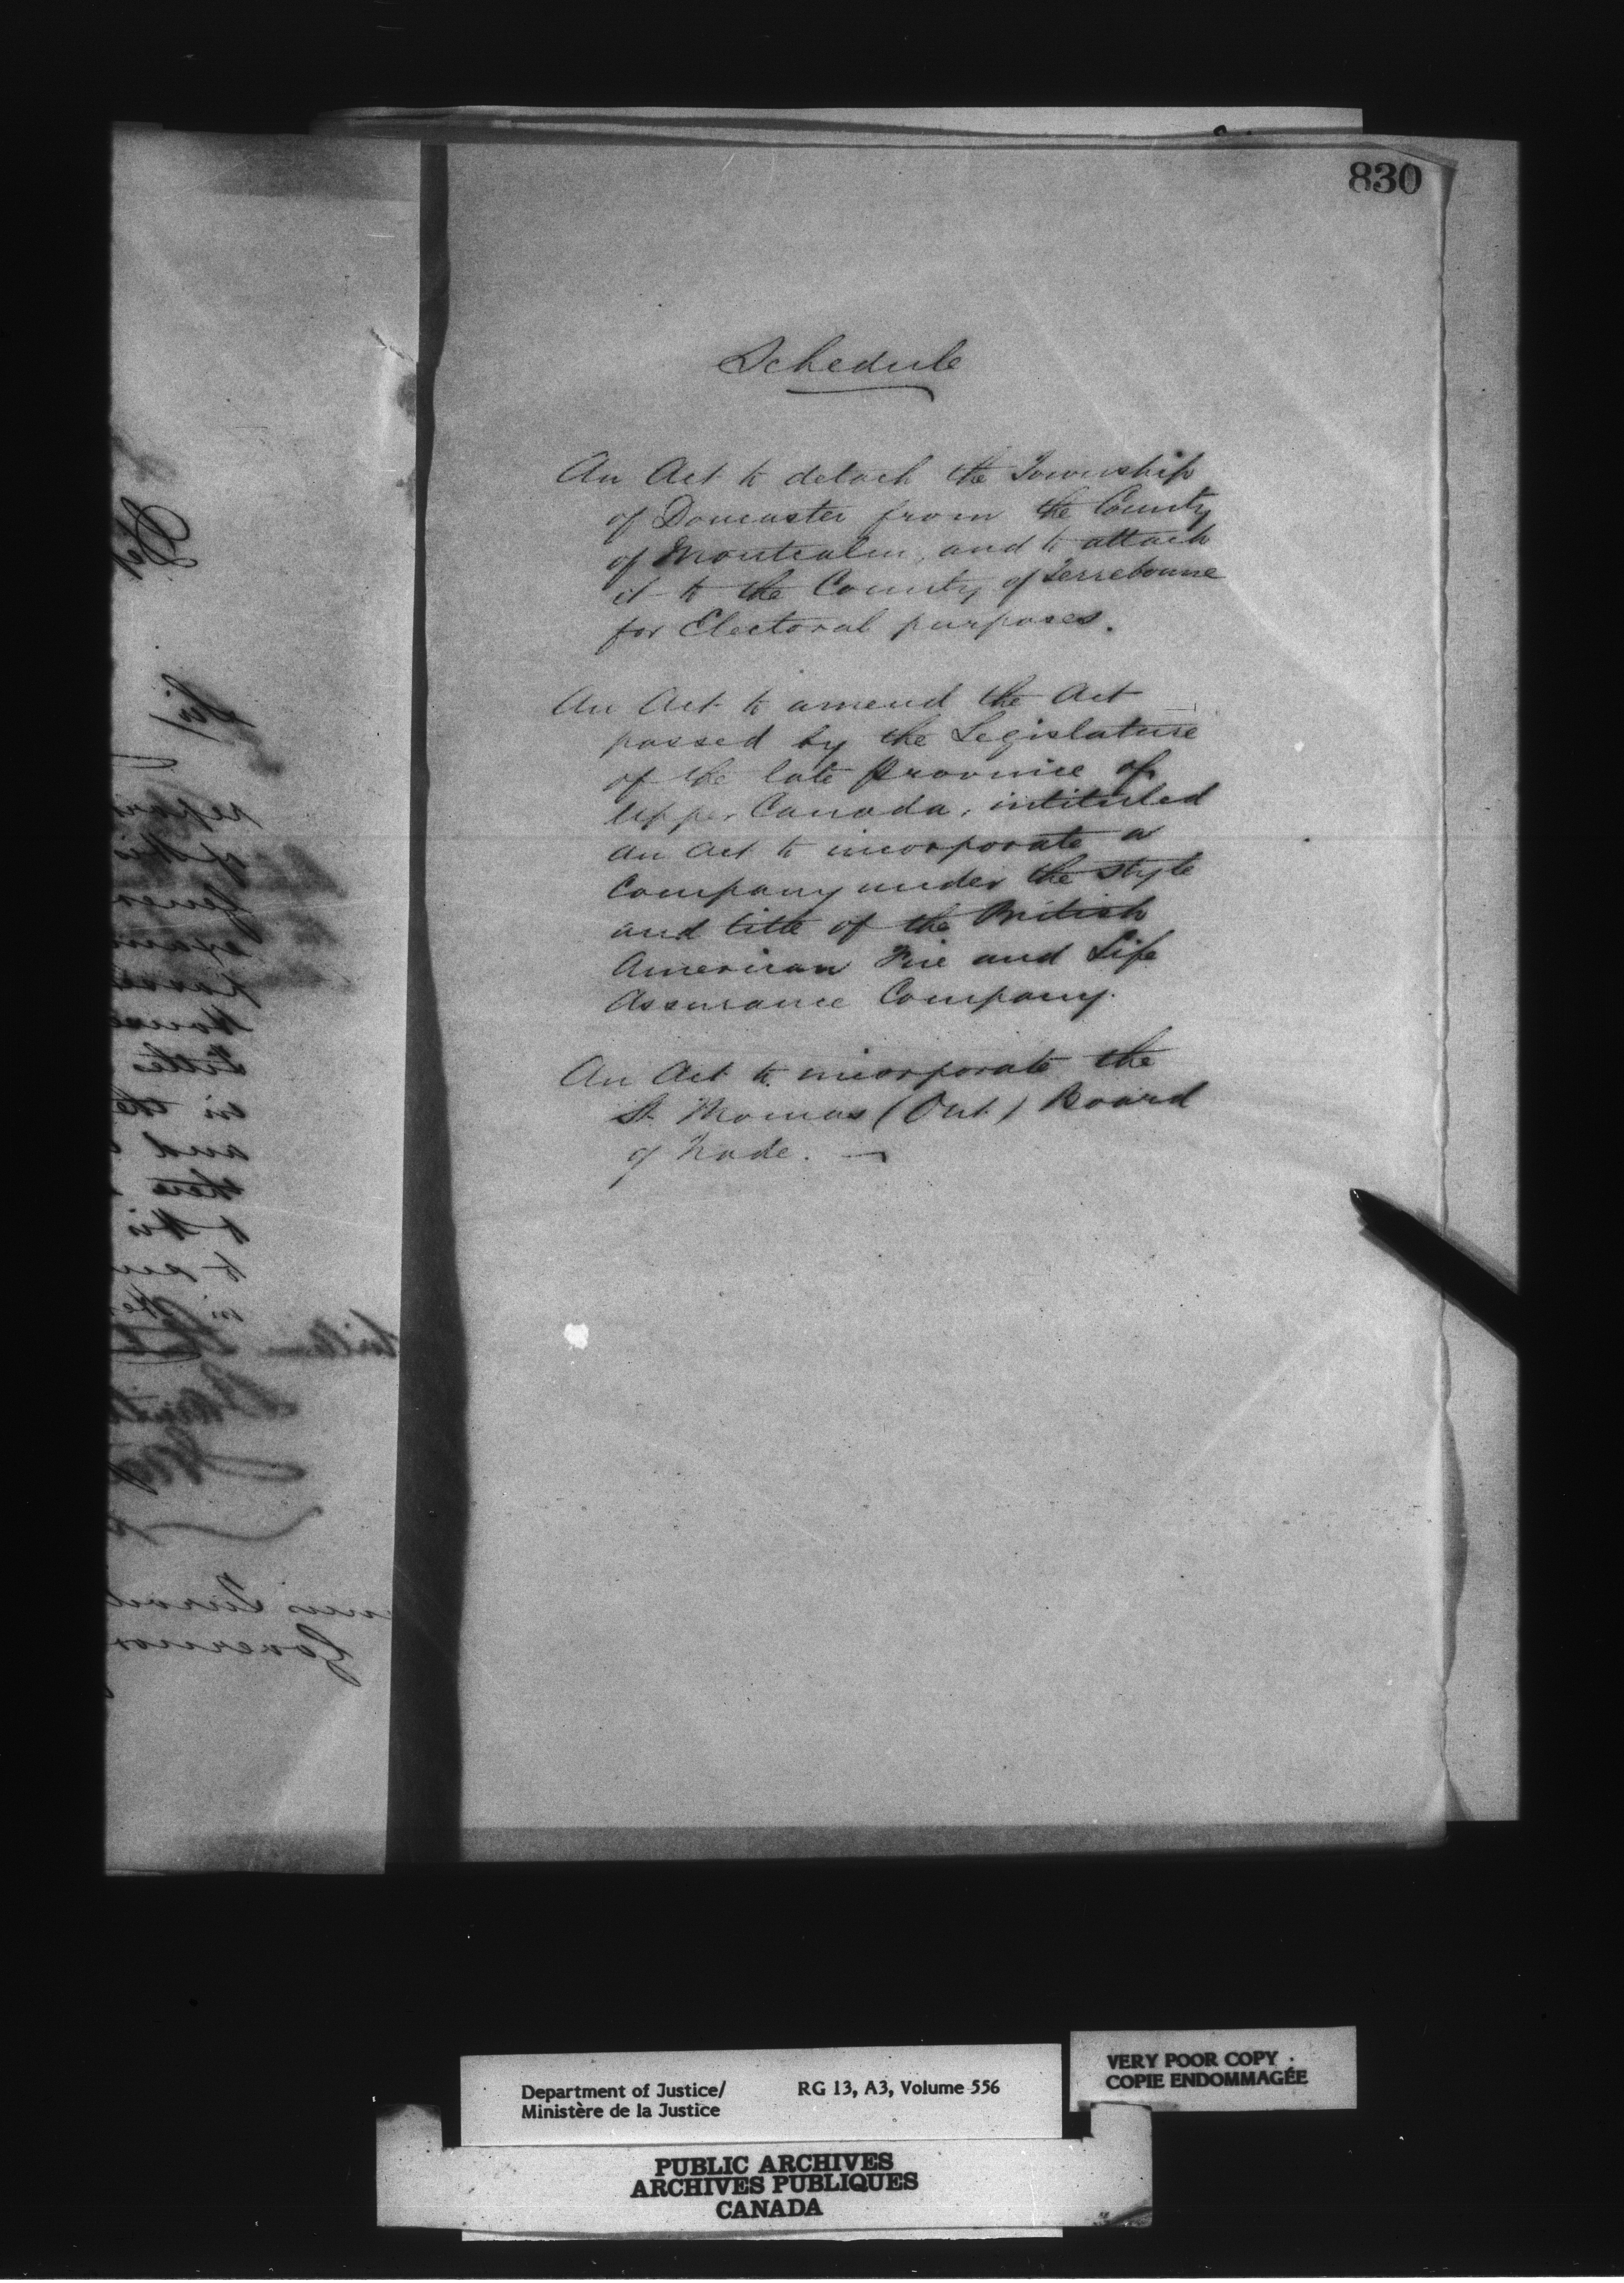 830
Schedule
An Act to detach the Township
of Doncaster from the County
of Montcalm, and to attach
it to the County of Terrebonne
for Electoral purposes.
An Act to amend the Act
passed by the Legislature
of the late Province of
Upper Canada, intituled
An Act to incorporate a
Company under the style
and title of the British
American Fire and Life
Assurance Company.
An Act to incorporate the
St. Thomas (Ont) Board
of Trade. —
Department of Justice/
Ministère de la Justice
RG 13, A3, Volume 556
VERY POOR COPY
COPIE ENDOMMAGÉE
PUBLIC ARCHIVES
ARCHIVES PUBLIQUES
CANADA